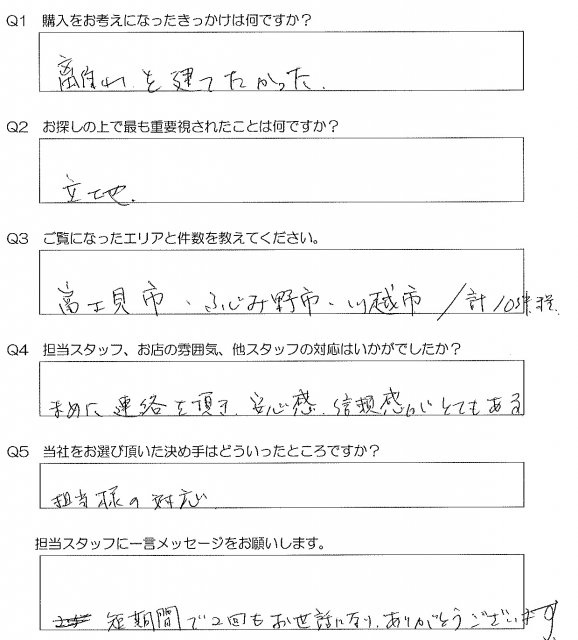 Q1 購入をお考えになったきっかけは何ですか？
離れを建てたかった.
Q2 お探しの上で最も重要視されたことは何ですか？
立地.
Q3 ご覧になったエリアと件数を教えてください。
富士見市・ふじみ野市・川越市/計10棟程.
Q4 担当スタッフ、お店の雰囲気、他スタッフの対応はいかがでしたか？
まめに連絡を頂き、安心感、信頼感がとてもある
Q5 当社をお選び頂いた決め手はどういったところですか？
担当様の対応
担当スタッフに一言メッセージをお願いします。
短期間で2回もお世話になり、ありがとうございます